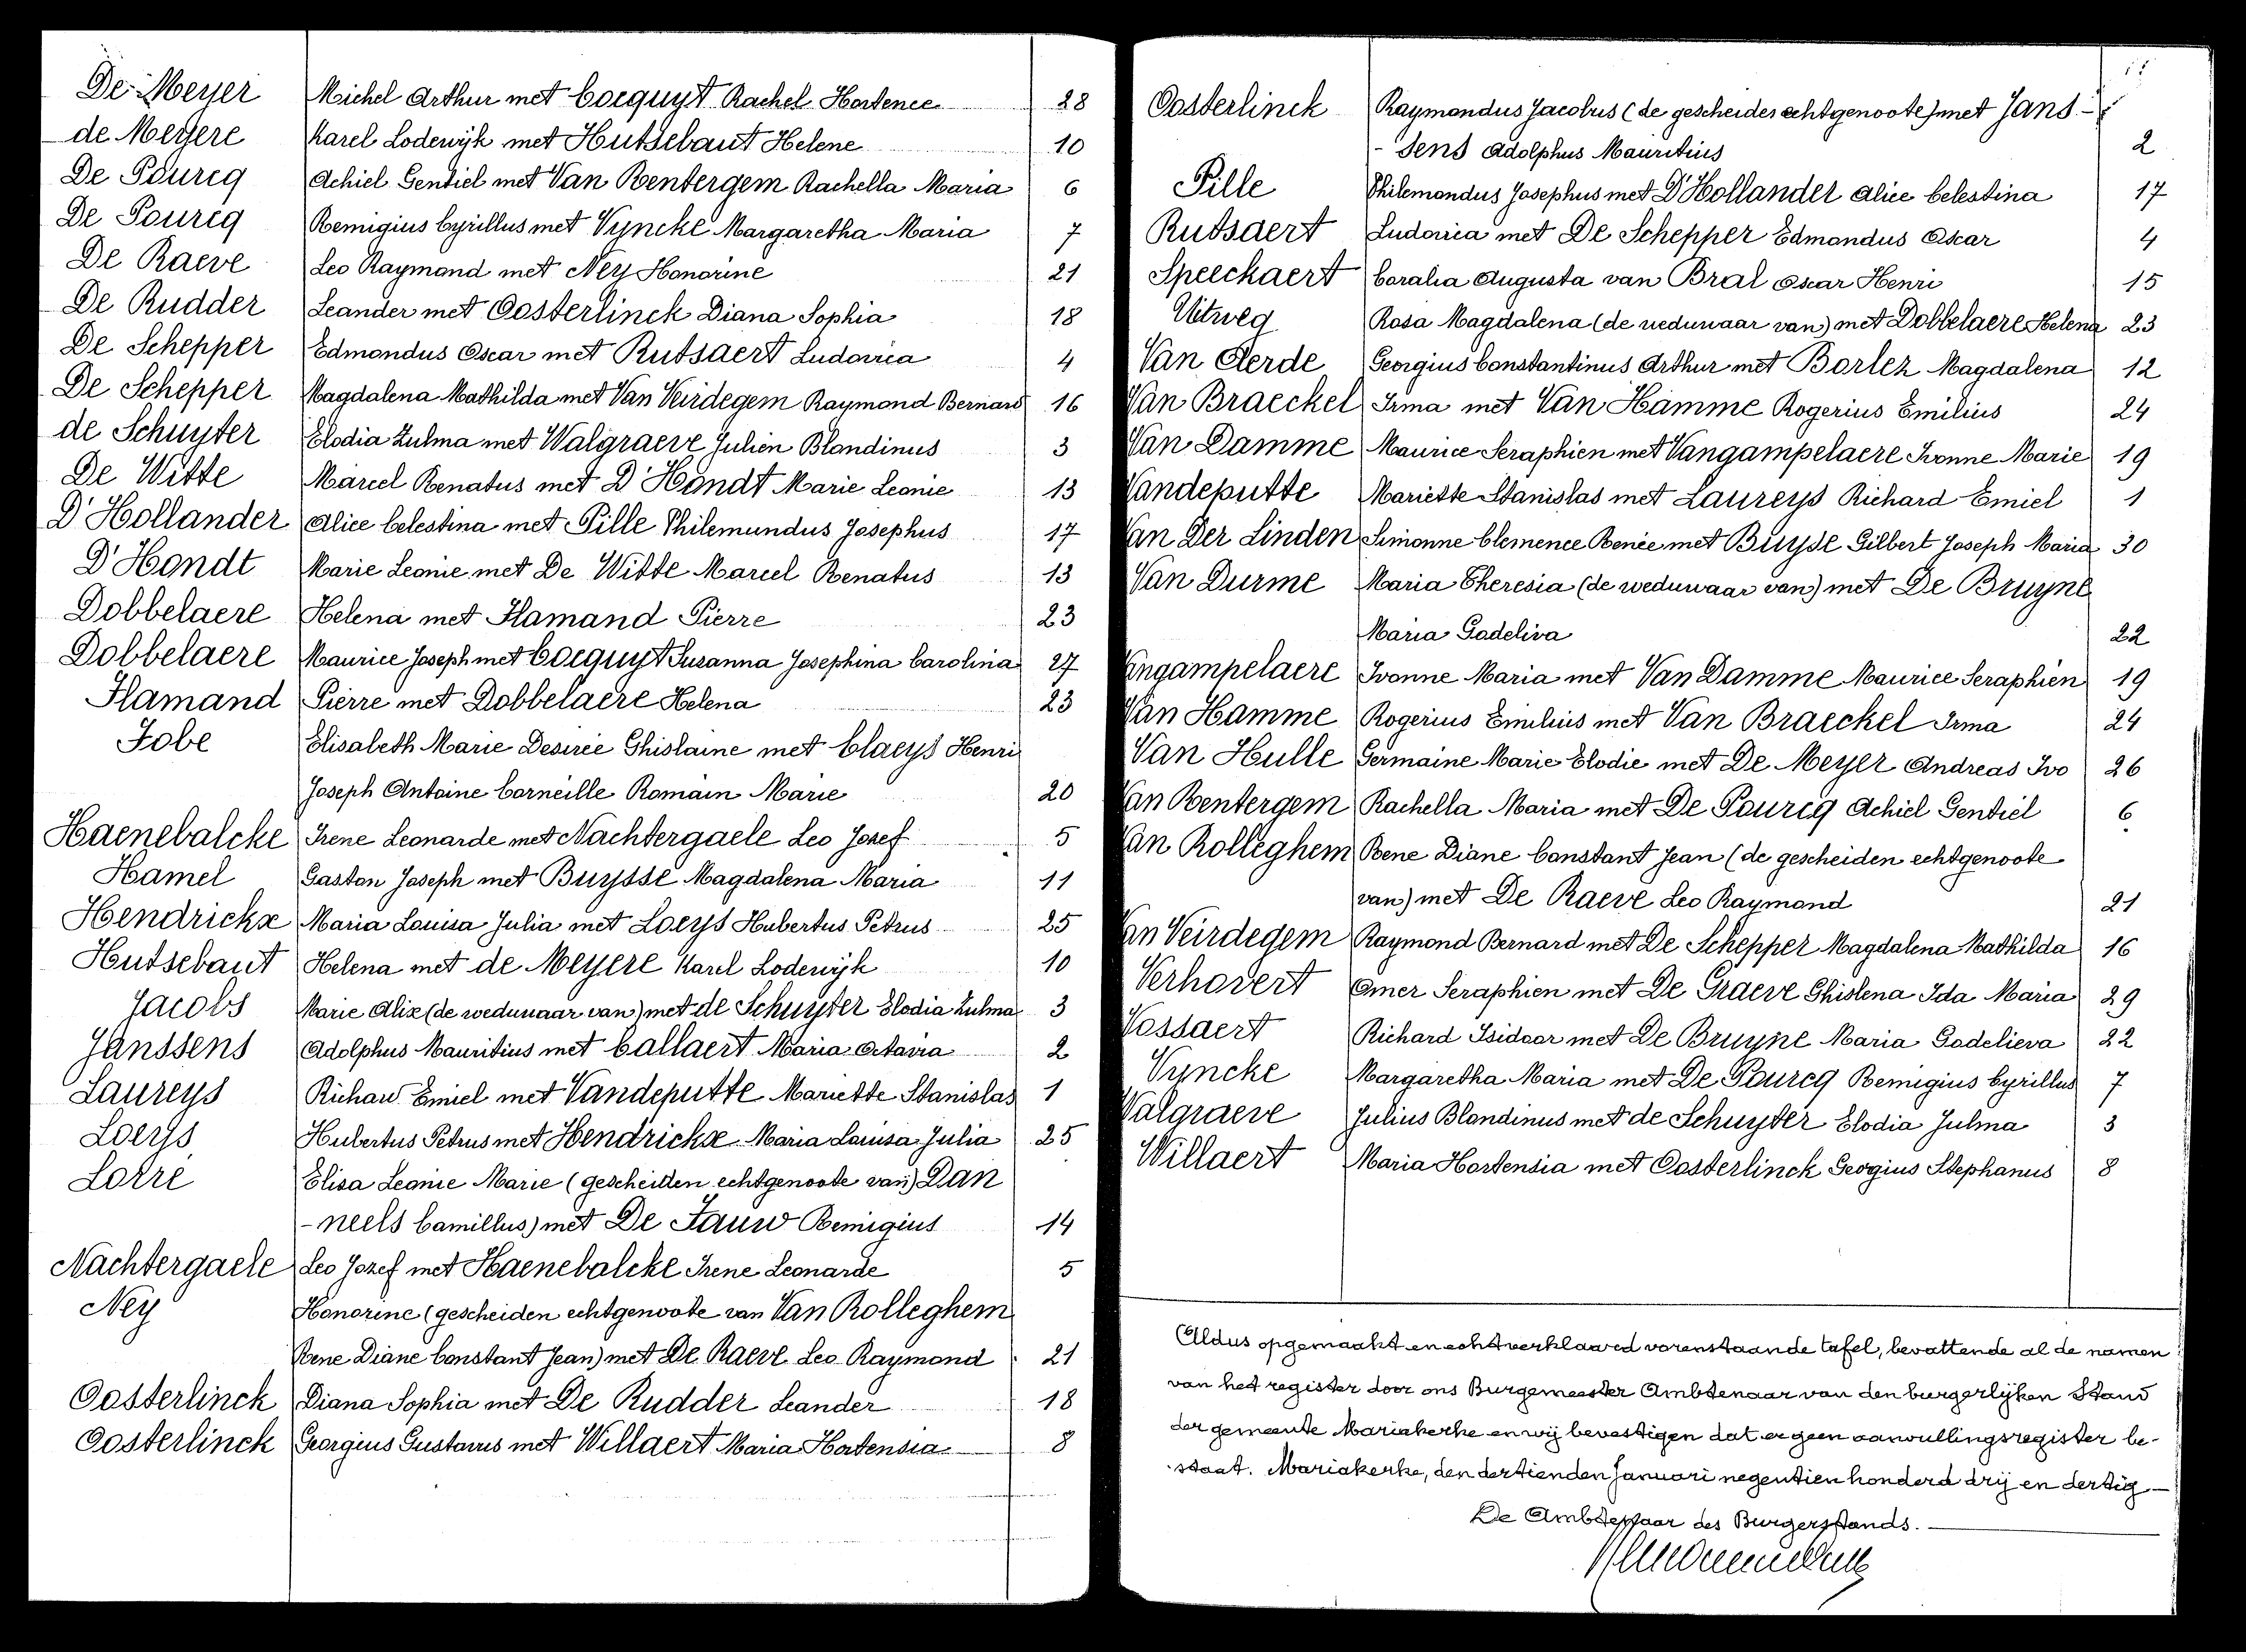 De Meyer Michel Arthur met Cocquyt Rachel Hortence 28
de Meyere Karel Lodewijk met Hutsebaut Helene 10
De Pourcq Achiel Gentiel met Van Rentergem Rachella Maria 6
De Pourcq Remigius Cyrillus met Vyncke Margaretha Maria 7
De Raeve Leo Raymond met Ney Honorine 21
De Rudder Leander met Oosterlinck Diana Sophia 18
De Schepper Edmondus Oscar met Rutsaert Ludovica 4
De Schepper Magdalena Mathilda met Van Veirdegem Raymond Bernard 16
de Schuyter Elodia Zulma met Walgraeve Julien Blandinus 3
De Witte Marcel Renatus met D'Hondt Marie Leonie 13
D'Hollander Alice Celestina met Pille Philemundus Josephus 17
D'Hondt Marie Leonie met De Witte Marcel Renatus 13
Dobbelaere Helena met Flamand Pierre 23
Dobbelaere Maurice Joseph met Cocquyt Susanna Josephina Carolina 27
Flamand Pierre met Dobbelaere Helena 23
Fobe Elisabeth Marie Desirée Ghislaine met Claeys Henri
Joseph Antoine Corneille Romain Marie 20
Haenebalcke Irene Leonarde met Nachtergaele Leo Jozef 5
Hamel Gaston Joseph met Buysse Magdalena Maria 11
Hendrickx Maria Louisa Julia met Loeys Hubertus Petrus 25
Hutsebaut Helena met de Meyere Karel Lodewijk 10
Jacobs Marie Alix (de weduwaar van) met de Schuyter Elodia Zulma 3
Janssens Adolphus Mauritius met Callaert Maria Octavia 2
Laureys Richard Emiel met Vandeputte Mariette Stanislas 1
Loeys Hubertus Petrus met Hendrickx Maria Louisa Julia 25
Lorre Elisa Leonie Marie (gescheiden echtgenoote van) Dan
-neels Camillus) met De Fauw Remigius 14
Nachtergaele Leo Jozef met Haenebalcke Irene Leonarde 5
Ney Honorine (gescheiden echtgenoote van Van Rolleghem
Rene Diane Constant Jean) met De Raeve Leo Raymond 21
Oosterlinck Diana Sophia met De Rudder Leander 18
Oosterlinck Georgius Gustavus met Willaert Maria Hortensia 8
Oosterlinck Raymondus Jacobus (de gescheiden echtgenoote) met Jans-
-sens Adolphus Mauritius 2
Pille Philemondus Josephus met D'Hollander Alice Celestina 17
Rutsaert Ludovica met De Schepper Edmondus Oscar 4
Speeckaert Coralia Augusta van Bral Oscar Henri 15
Uitweg Rosa Magdalena (de weduwaar van) met Dobbelaere Helena 23
Van Aerde Georgius Constantinus Arthur met Borlez Magdalena 12
Van Braeckel Irma met Van Hamme Rogerius Emilius 24
Van Damme Maurice Seraphien met Vangampelaere Ivonne Marie 19
Vandeputte Mariette Stanislas met Laureys Richard Emiel 1
Van Der Linden Simonne Clemence Renée met Buyse Gilbert Joseph Maria 30
Van Durme Maria Theresia (de weduwaar van) met De Bruyne
Maria Godeliva 22
Vangampelaere Ivonne Maria met Van Damme Maurice Seraphien 19
Van Hamme Rogerius Emilius met Van Braeckel Irma 24
Van Hulle Germaine Marie Elodie met De Meyer Andreas Ivo 26
Van Rentergem Rachella Maria met De Pourcq Achiel Gentiel 6
Van Rolleghem Rene Diane Constant Jean (de gescheiden echtgenoote
van) met De Raeve Leo Raymond 21
Van Veirdegem Raymond Bernard met De Schepper Magdalena Mathilda 16
Verhovert Omer Seraphien met De Graeve Ghislena Ida Maria 29
Vossaert Richard Isidoor met De Bruyne Maria Godelieva 22
Vyncke Margaretha Maria met De Pourcq Remigius Cyrillus 7
Walgraeve Julius Blandinus met de Schuyter Elodia Julma 3
Willaert Maria Hortensia met Oosterlinck Georgius Stephanus 8
Aldus opgemaakt en echt verklaard vorenstaande tafel, bevattende al de namen
van het register door ons Burgemeester Ambtenaar van den burgerlijken Stand
der gemeente Mariakerke en wij bevestigen dat er geen aanvullingsregister be-
staat. Mariakerke, den dertienden Januari negentien honderd drij en dertig
De Ambtenaar des Burgerstands.